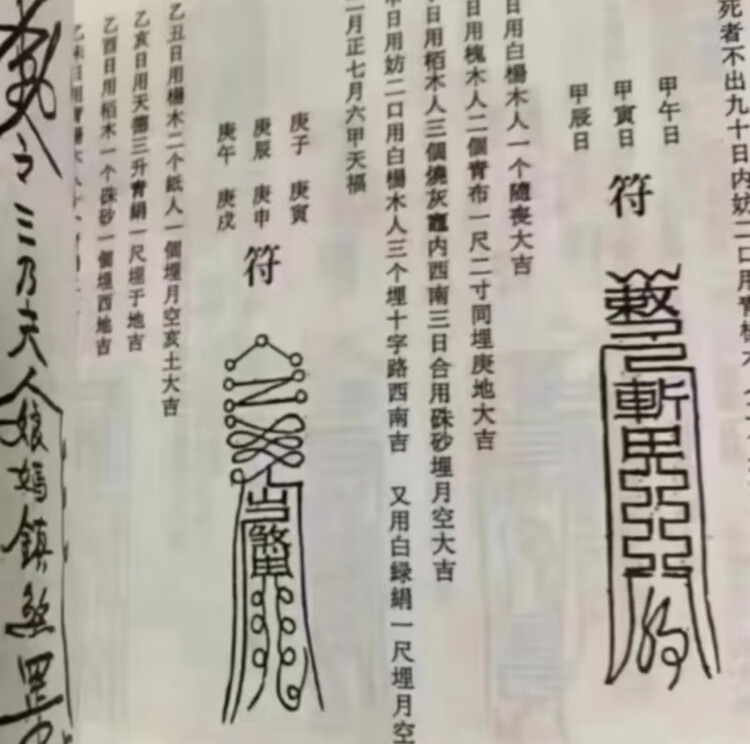 死者不出九十日内妨二口用青
甲午日
甲寅日
甲辰日
符
日用白楊木人一个隨喪大吉
日用槐木人二個青布一尺二寸同埋庚地大吉
日用栢木人三個燒灰竈内西南三日合用硃砂埋月空大吉
日用妨二口用白楊木人三个埋十字路西南吉 又用白緑絹一尺埋月空
月正七月六甲天福
庚子 庚寅
庚辰 庚申
庚午 庚戌
符
乙丑日用楊木二个紙人一個埋月空亥土大吉
乙亥日用天德三升青絹一尺埋于地吉
乙酉日用栢木一个硃砂一個埋西地吉
令三乃夫人娘媽鎮煞罡